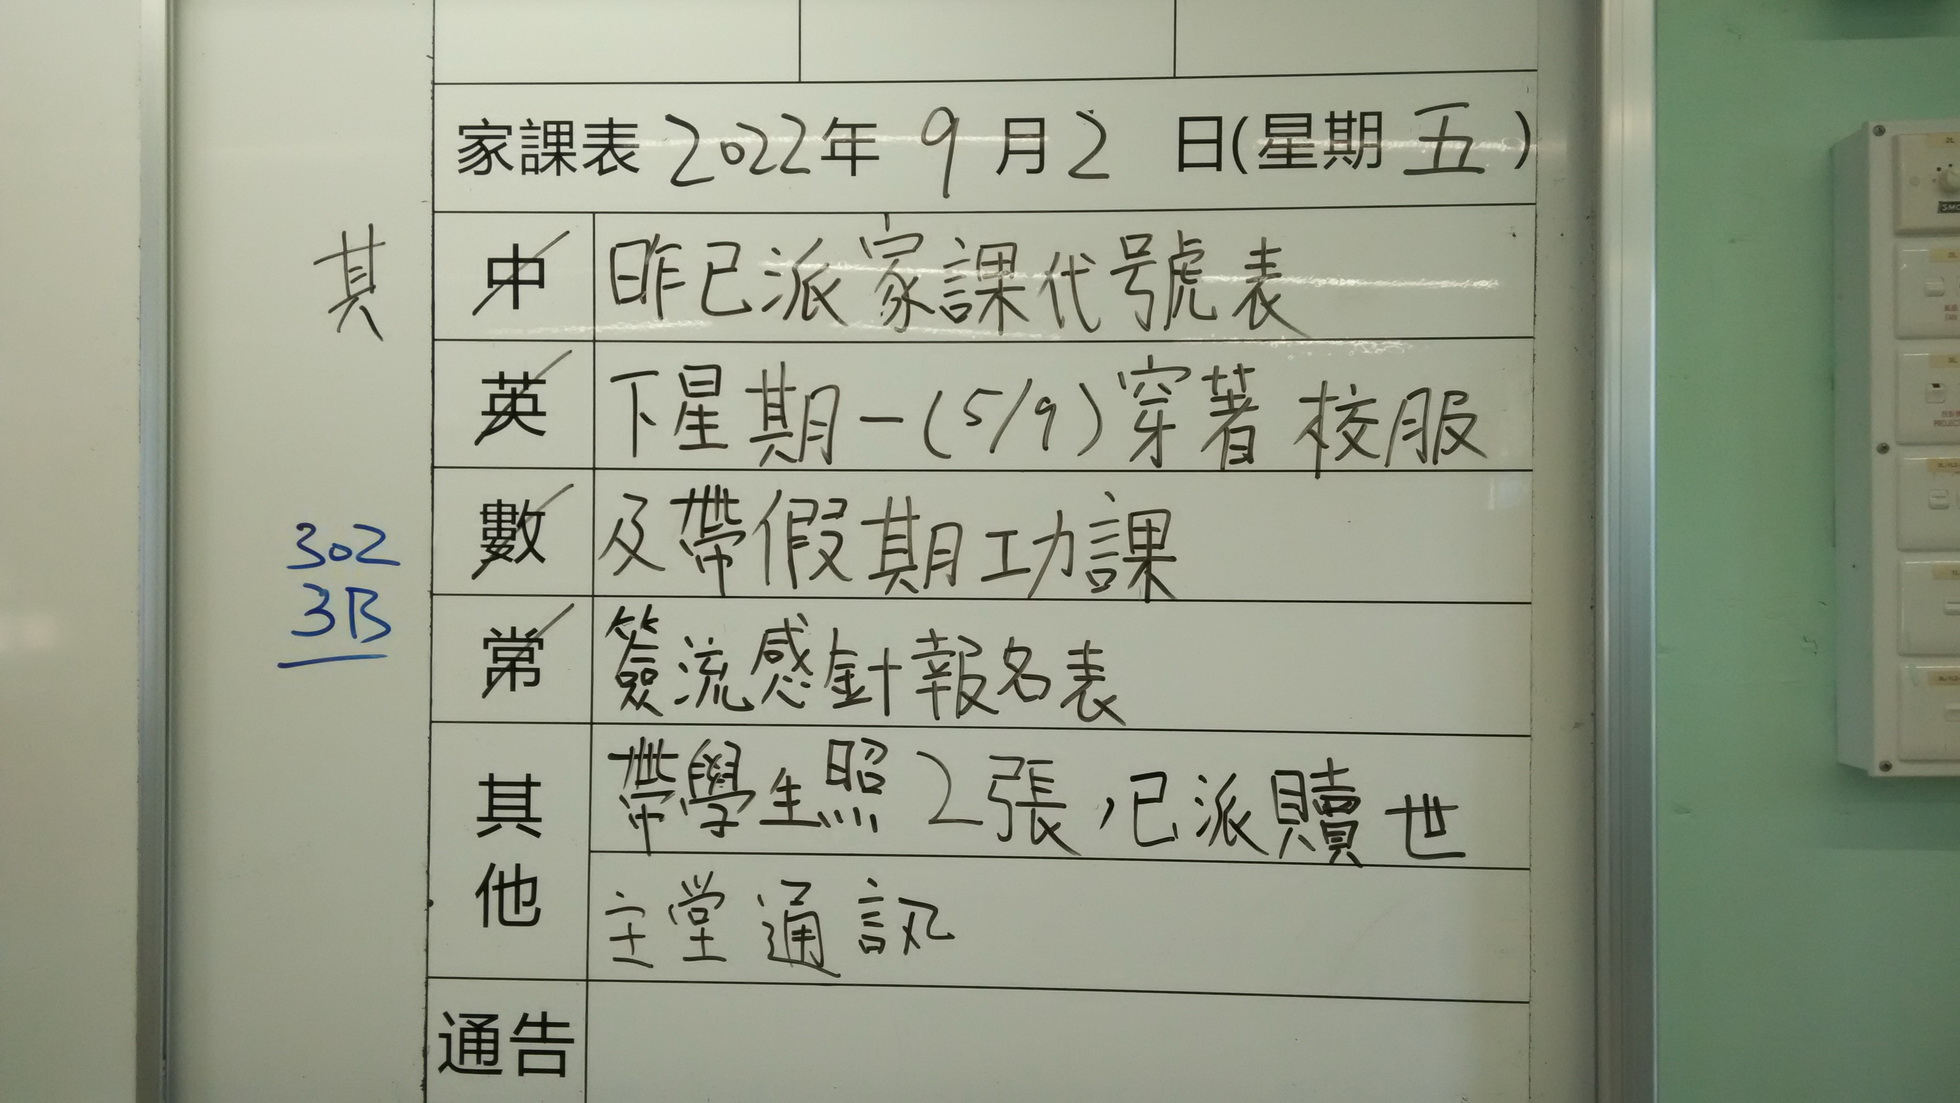 家課表 2022年 9 月 2 日(星期 五 )
其
中 昨已派家課代號表
英 下星期一(5/9)穿著校服
數 及帶假期功課
302
3B
常 簽流感針報名表
其他 帶學生照2張,已派贖世
主堂通訊
通告